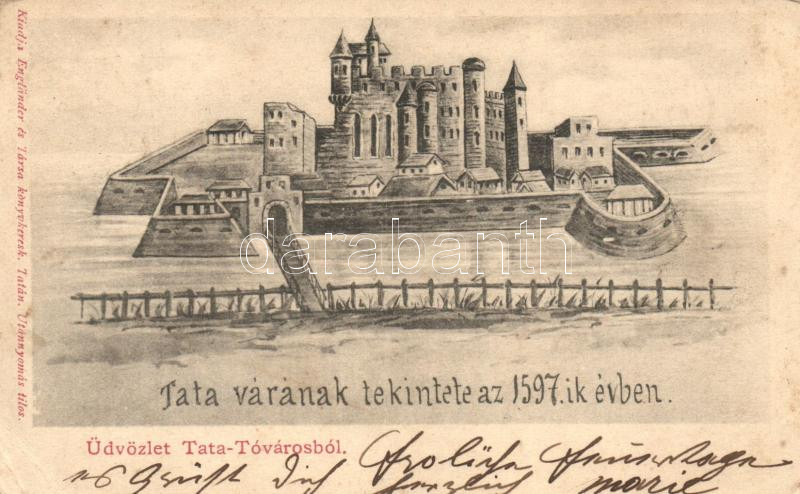 Kiadja Engländer és Társa könyvkeresk. Tatán. Utánnyomás tilos.
darabanth.com
Tata várának tekintete az 1597.ik évben.
Üdvözlet Tata-Tóvárosból.
Froliche Feuertage
es Grüßt Dich herzlich marie